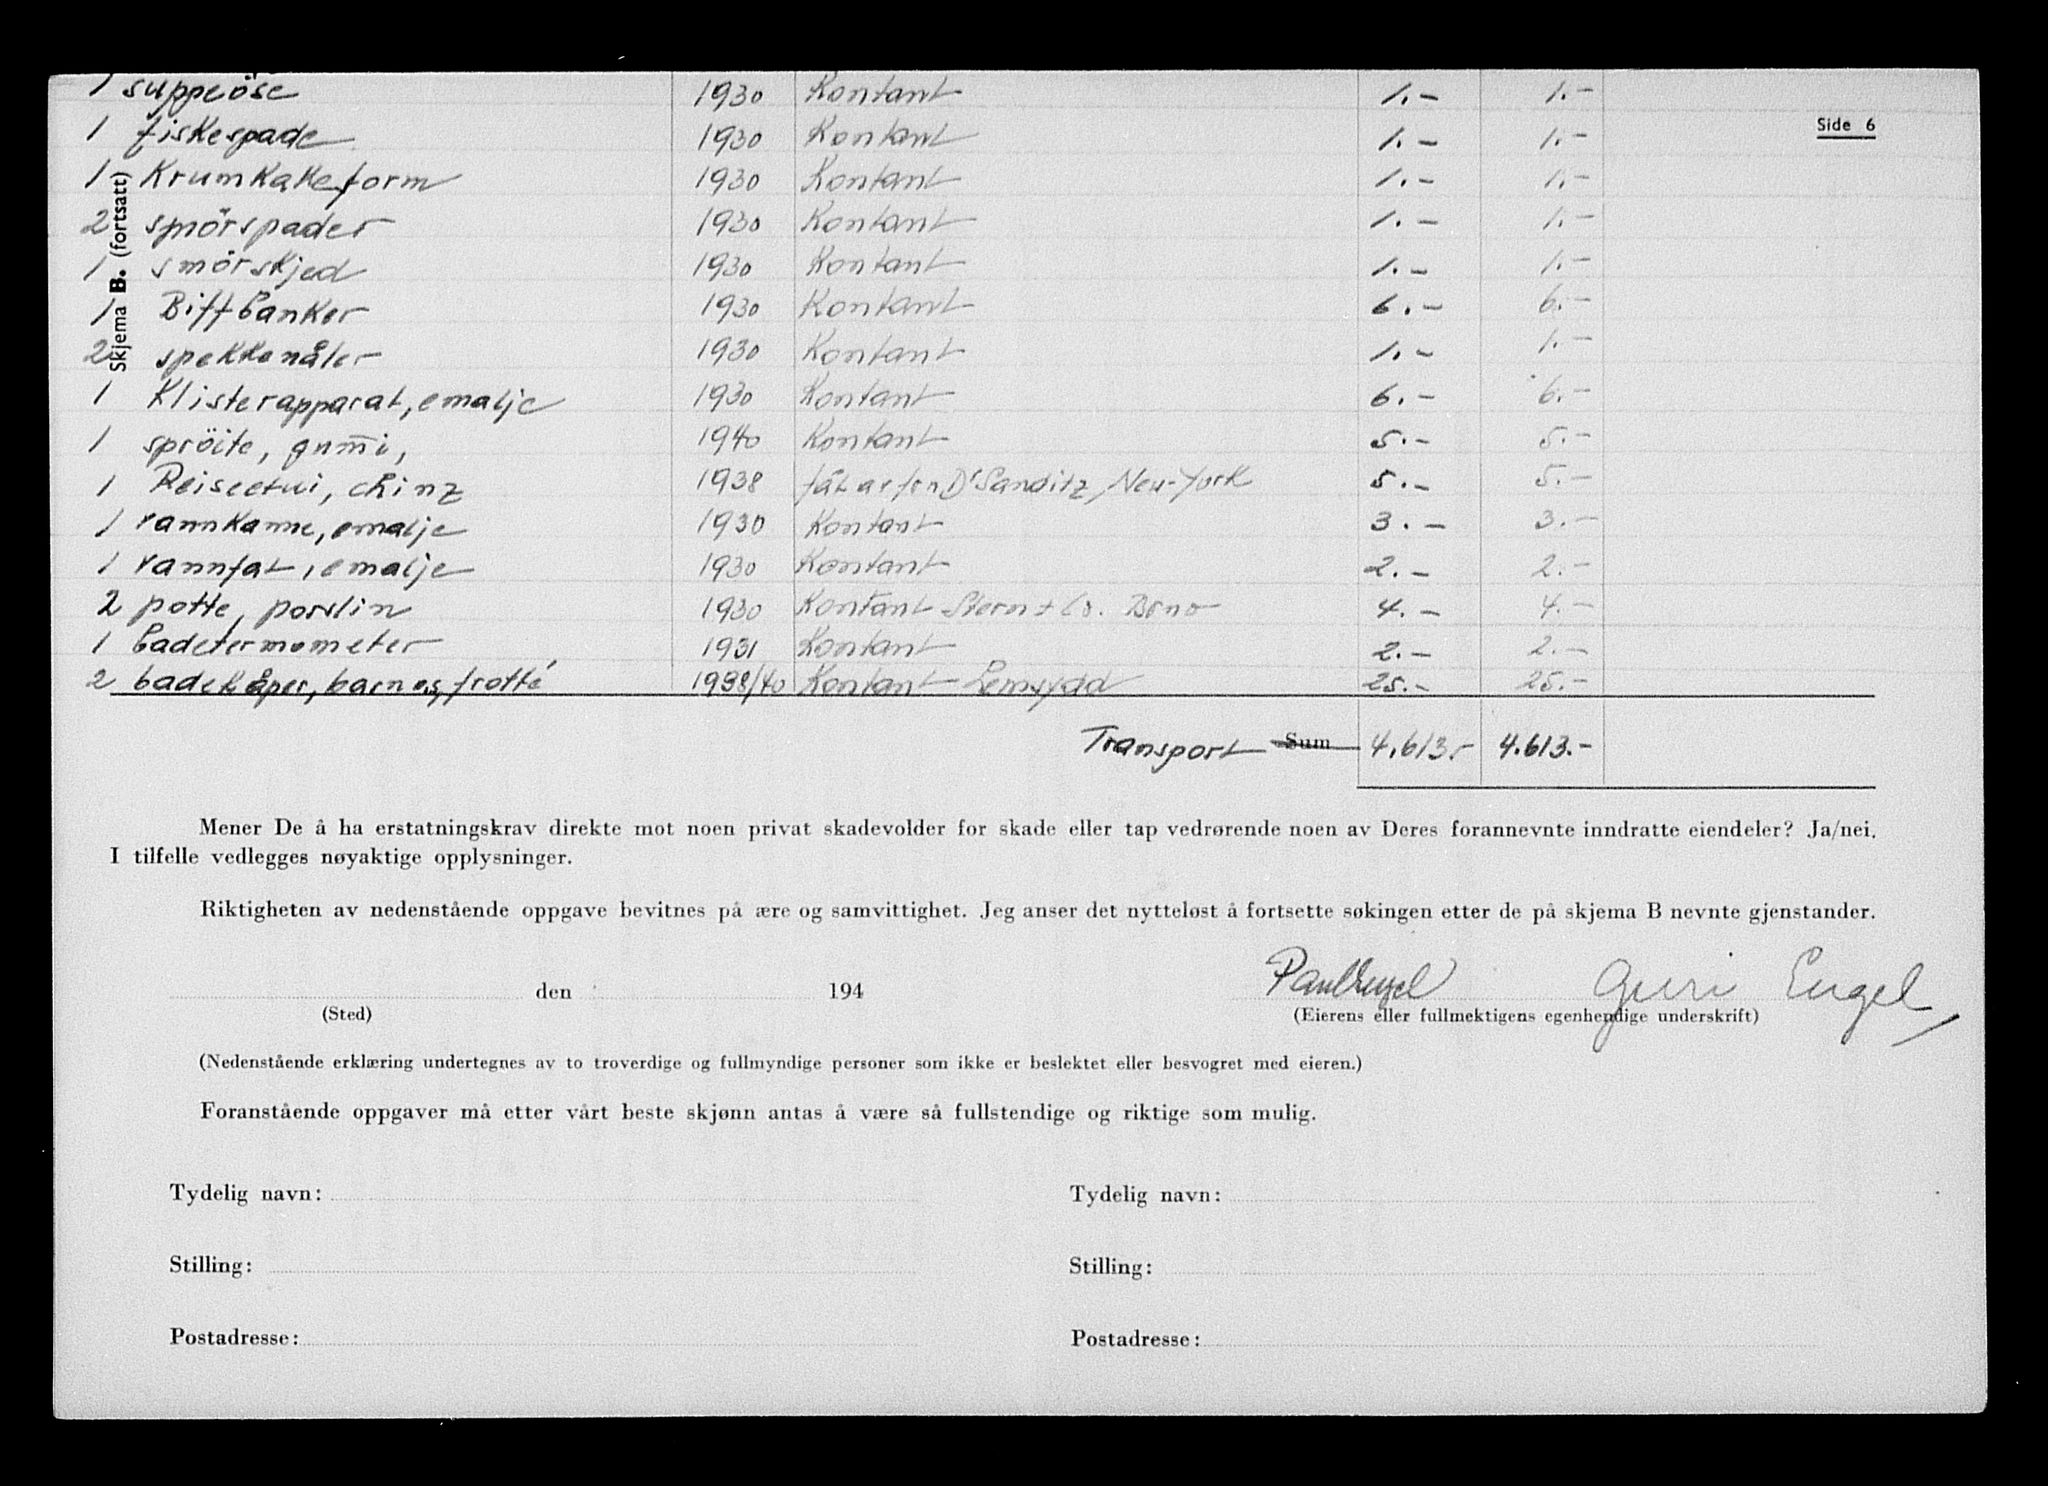 1 suppeöse 1930 Kontant 1.- 1.-
Side 6
1 fiskespade 1930 Kontant 1.- 1.-
1 Krumkakeform 1930 Kontant 1.- 1.-
2 smörspader 1930 Kontant 1.- 1.-
1 smörskjed 1930 Kontant 1.- 1.-
1 Biffbanker 1930 Kontant 6.- 6.-
2 spekkenåler 1930 Kontant 1.- 1.-
Skjema B. (fortsatt)
1 Klisterapparat, emalje 1930 Kontant 6.- 6.-
1 spröite, gum̅i, 1940 Kontant 5.- 5.-
1 Reiseetui, chinz 1938 fåt av frn Dr Sanditz, New-York 5.- 5.-
1 vannkanne, emalje 1930 Kontant 3.- 3.-
1 vannfat, emalje 1930 Kontant 2.- 2.-
2 potte, porslin 1930 Kontant Stern + Co. Brno 4.- 4.-
1 badetermometer 1931 Kontant 2.- 2.-
2 badekåper, barnes, frotté 1938/40 Kontant 25.- 25.-
Transport Sum 4.613.- 4.613.-
Mener De å ha erstatningskrav direkte mot noen privat skadevolder for skade eller tap vedrørende noen av Deres forannevnte inndratte eiendeler? Ja/nei.
I tilfelle vedlegges nøyaktige opplysninger.
Riktigheten av nedenstående oppgave bevitnes på ære og samvittighet. Jeg anser det nytteløst å fortsette søkingen etter de på skjema B nevnte gjenstander.
Paul Engel Guri Engel
den 194
(Sted) (Eierens eller fullmektigens egenhendige underskrift)
(Nedenstående erklæring undertegnes av to troverdige og fullmyndige personer som ikke er beslektet eller besvogret med eieren.)
Foranstående oppgaver må etter vårt beste skjønn antas å være så fullstendige og riktige som mulig.
Tydelig navn: Tydelig navn:
Stilling: Stilling:
Postadresse: Postadresse: